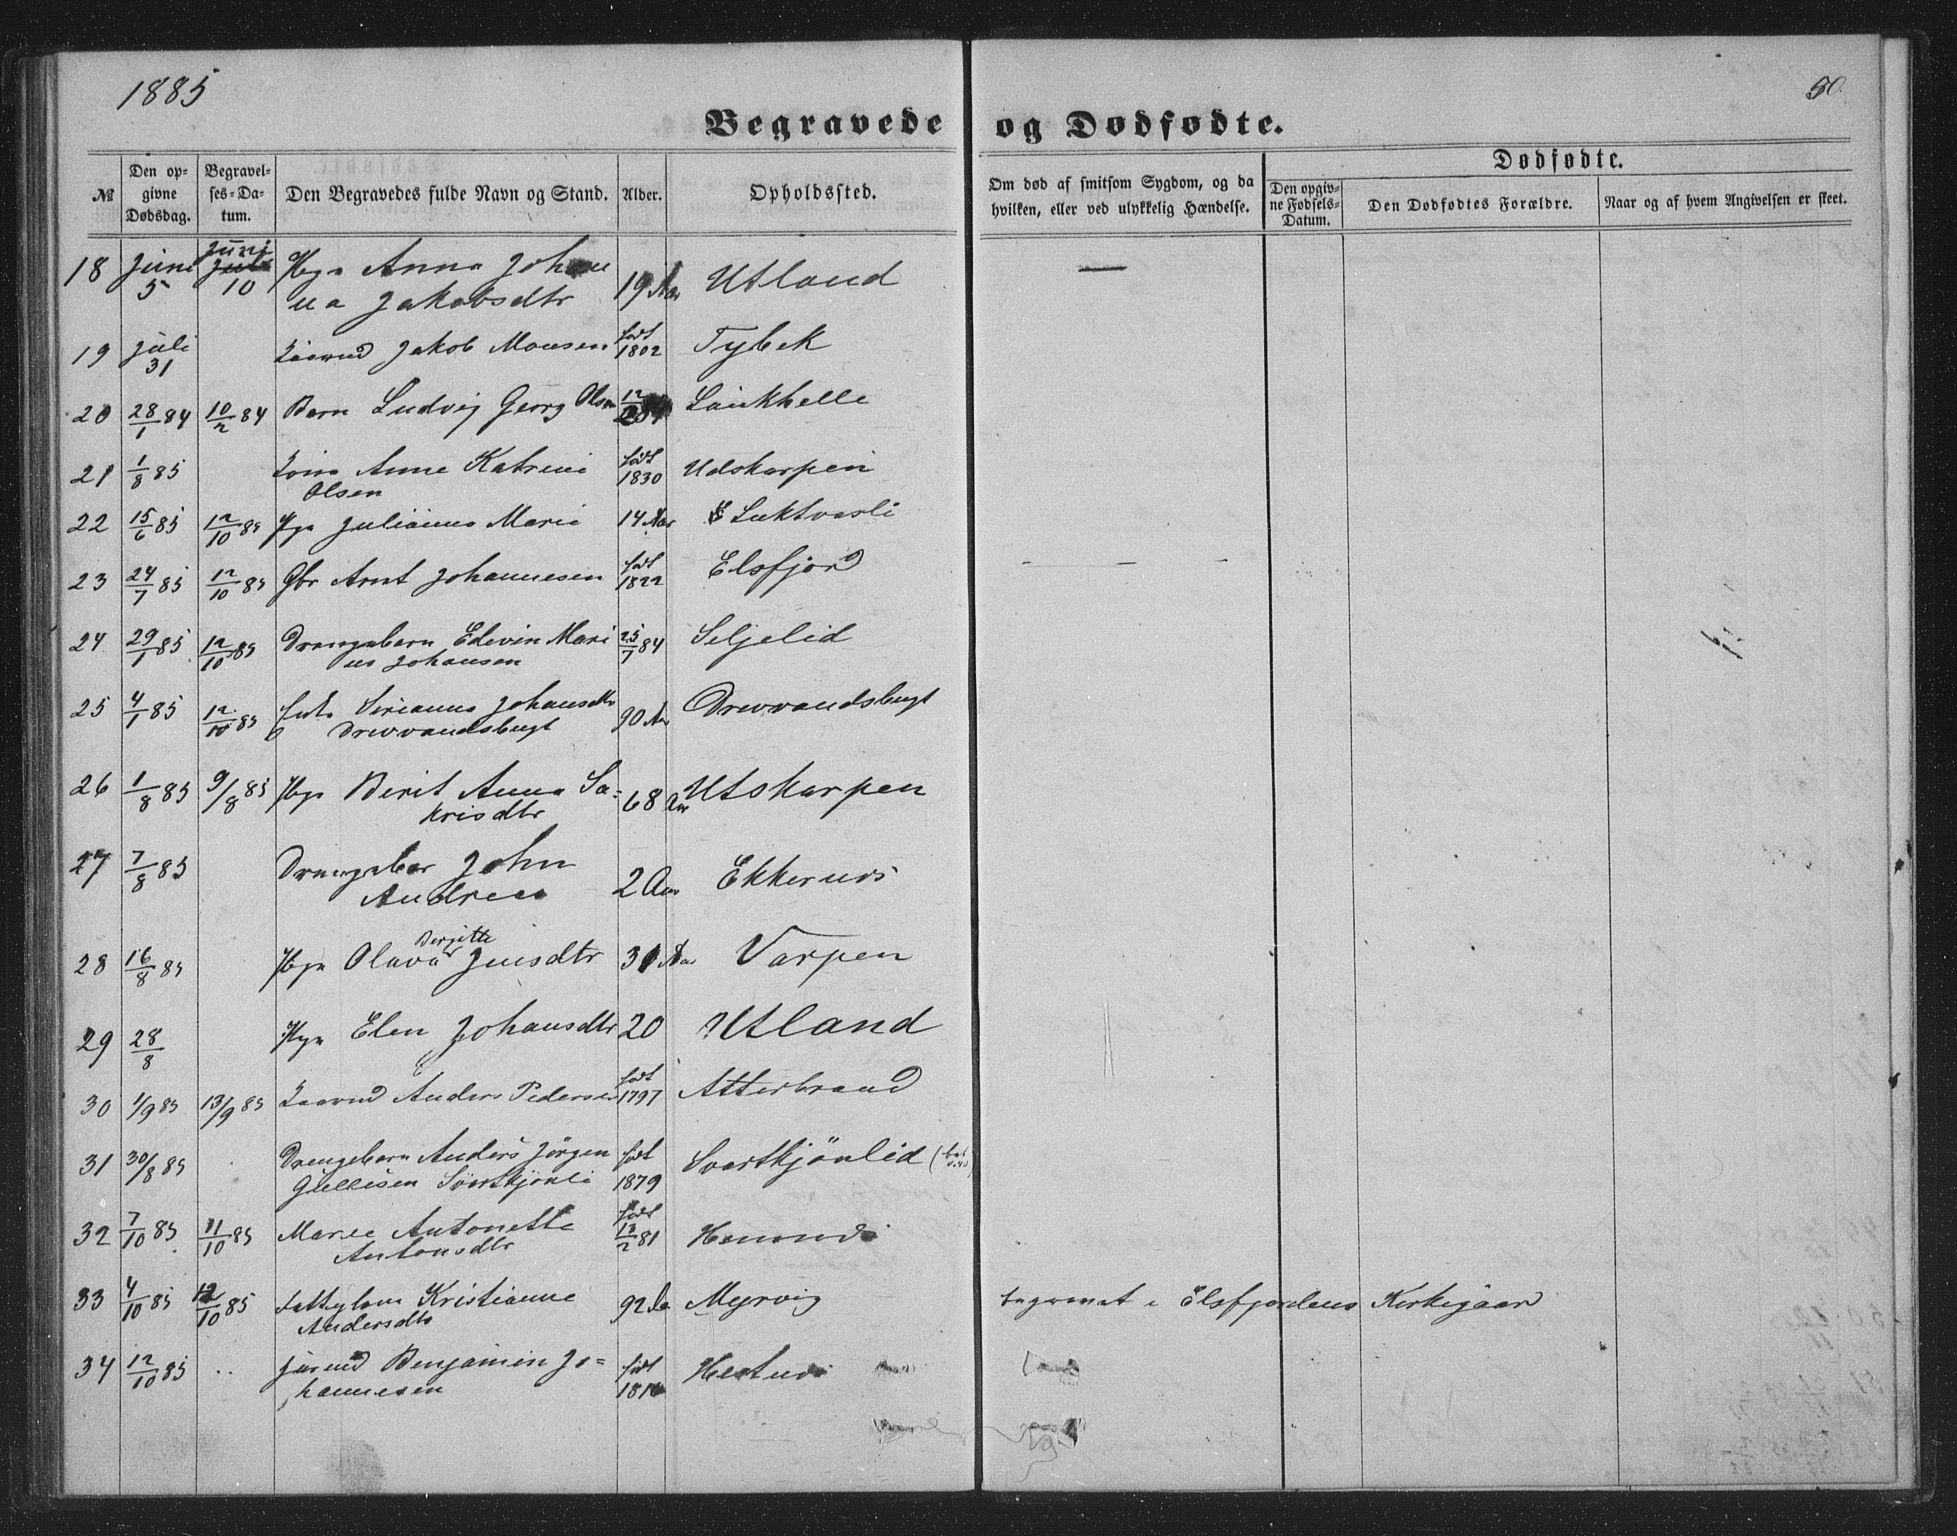 1885
50.
Begravede og Dødfødte.
№
Den opgivne Dødsdag.
Begravelses-Datum.
Den Begravedes fulde Navn og Stand.
Alder.
Opholdssted.
Om død af smitsom Sygdom, og da hvilken, eller ved ulykkelig Hændelse.
Dødfødte.
Den opgivne Fødsels-Datum.
Den Dødfødtes Forældre.
Naar og af hvem Angivelsen er skeet.
18 Juni 5 Juni 10 Pige Anna Johanna Jakobsdtr 19 Aar Utland —
19 Juli 31 Jakob Monsen født 1802 Tybek
20 28/1 84 10/2 84 Barn Ludvig Georg Olsen Laukhelle
21 1/8 85 Kone Anne Katrine Olsen født 1830 Udskarpen
22 15/6 85 12/10 85 Pige Julianna Marie 14 Aar Luktvasli
23 24/7 85 12/10 85 Gbr Arnt Johannesen født 1822 Elsfjord
24 29/1 85 12/10 85 Drengebarn Edevin Marius Johansen 25/7 84 Seljelid
25 4/1 85 12/10 85 Sirianna Johansdtr Drevvandsbugt 90 Aar Drevvandsbugt
26 1/8 85 9/8 85 Birit Anna Sakrisdtr 68 Aar Utskarpen
27 7/8 85 Drengebar John Andreas 2 Aar Ekkernes
28 16/8 85 Pige Olava Berjitte Jensdtr 31 Aar Varpen
29 28/8 Pige Elen Johansdtr 20 Utland
30 1/9 85 13/9 85 Anders Pedersen født 1797 Atterbrand
31 30/8 85 Drengebarn Anders Jörgen Gullesen født 1879 Svartkjönlid
32 7/10 85 11/10 85 Maree Antonette Antonsdtr født 12/2 81 Hemnes
33 4/10 85 12/10 85 Kristianne Andersdtr 92 Aa Myrvig begravet i Elsfjordens Kirkegaard
34 12/10 85 Benjamin Johannesen født Hestnes